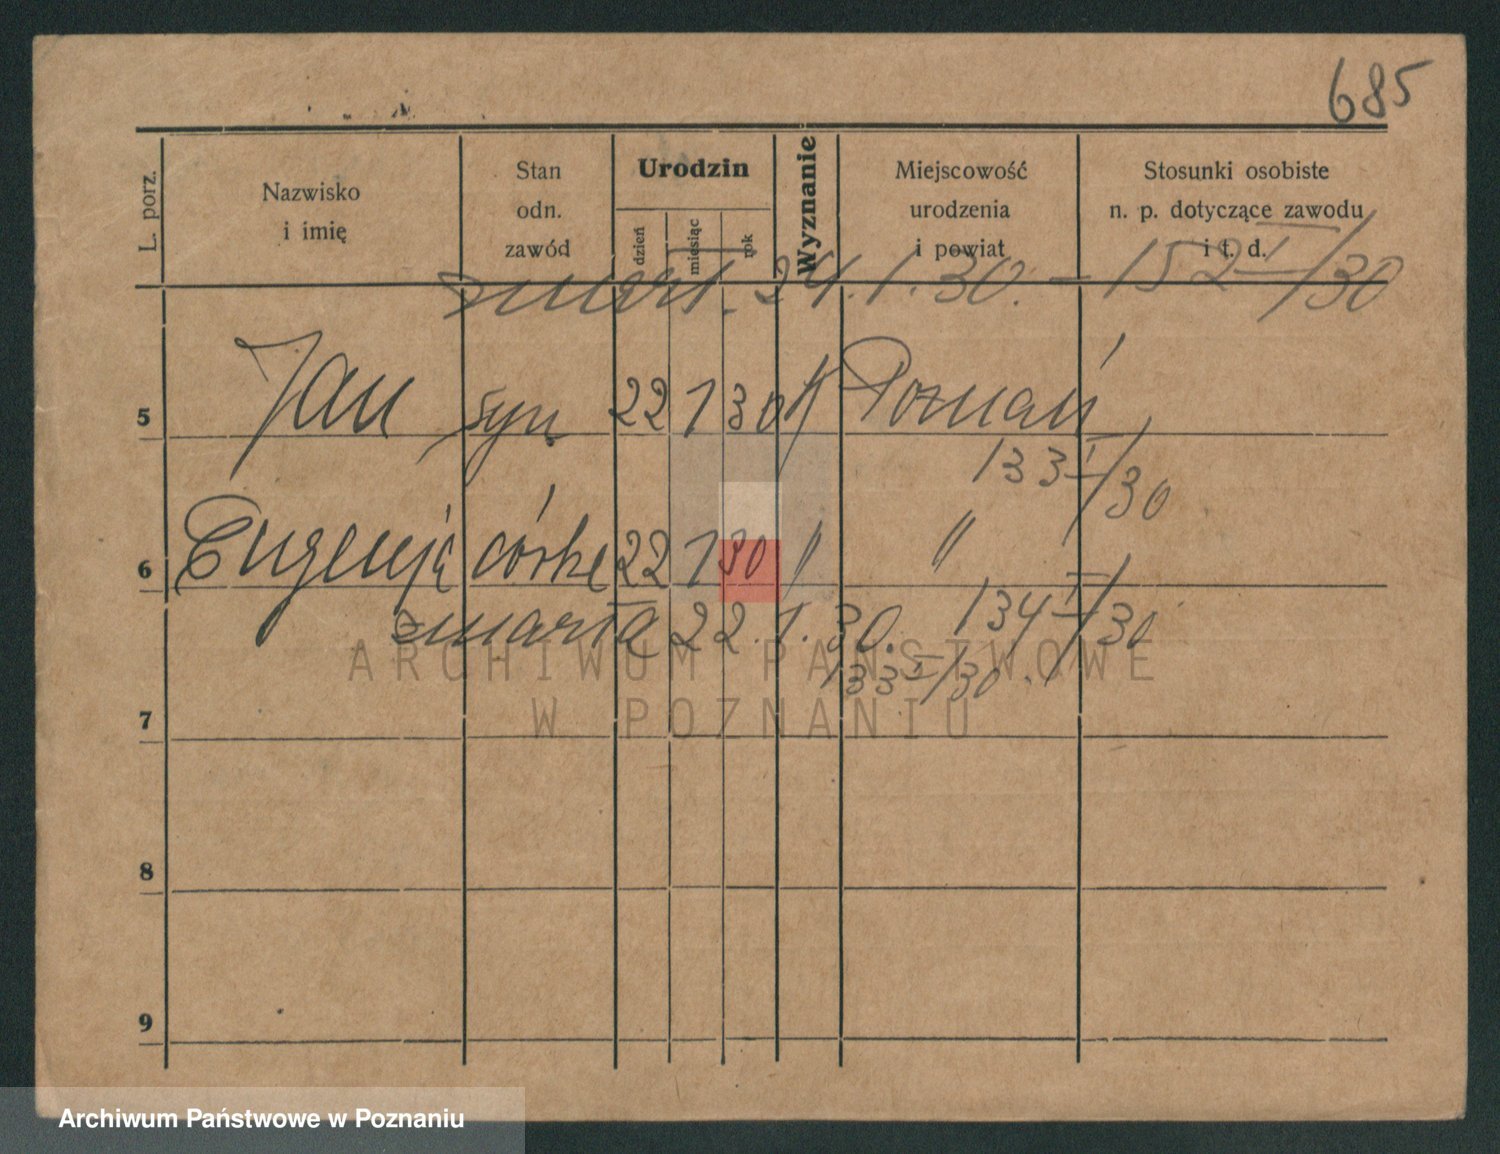 685
L. porz.
Nazwisko i imię
Stan odn. zawód
Urodzin
dzień
miesiąc
rok
Wyznanie
Miejscowość urodzenia i powiat
Stosunki osobiste n. p. dotyczące zawodu i t. d.
zmarł. 24.1.30. – 152 I/30
5 Jan syn 22 1 30 k Poznań
133 I/30
6 Eugenja córka 22 1 30 " "
134 I/30
zmarła 22.1.30.
133 I/30.
ARCHIWUM PAŃSTWOWE
W POZNANIU
7
8
9
Archiwum Państwowe w Poznaniu